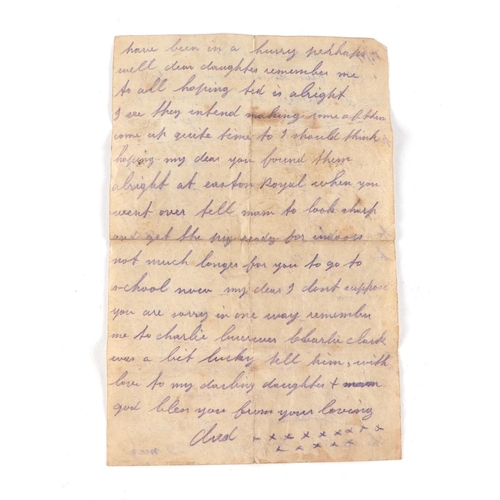 have been in a hurry perhaps
well dear daughter remember me
to all hoping ted is alright
I see they intend making some of them
come up quite time to I should think
hoping my dear you found them
alright at easton Royal when you
went over tell mam to look sharp
and get the pig ready for
not much longer for you to go to
school now my dear I dont suppose
you are sorry in one way remember
me to charlie Charlie clark
was a bit lucky tell him, with
love to my darling daughter + mam
god bless you from your loving
Dad x x x x x x x x
x x x x x